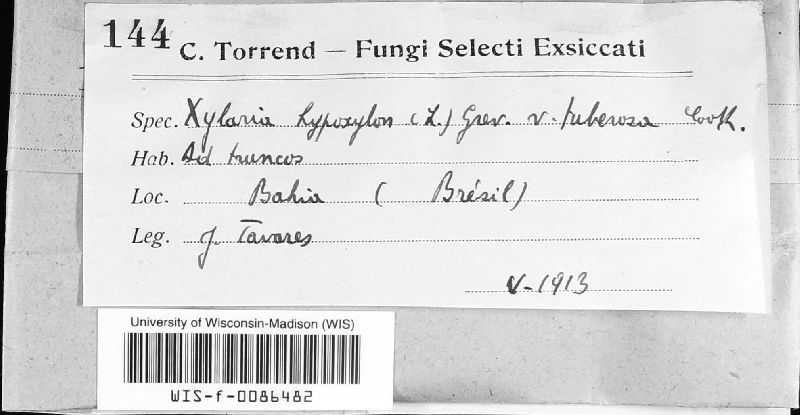 144 C. Torrend — Fungi Selecti Exsiccati
Spec. Xylaria hypoxylon (L.) Grev. v. tuberosa Cook.
Hab. Ad truncos
Loc. Bahia ( Brésil)
Leg. J. Tavares
V-1913
University of Wisconsin-Madison (WIS)
WIS-f-0086482